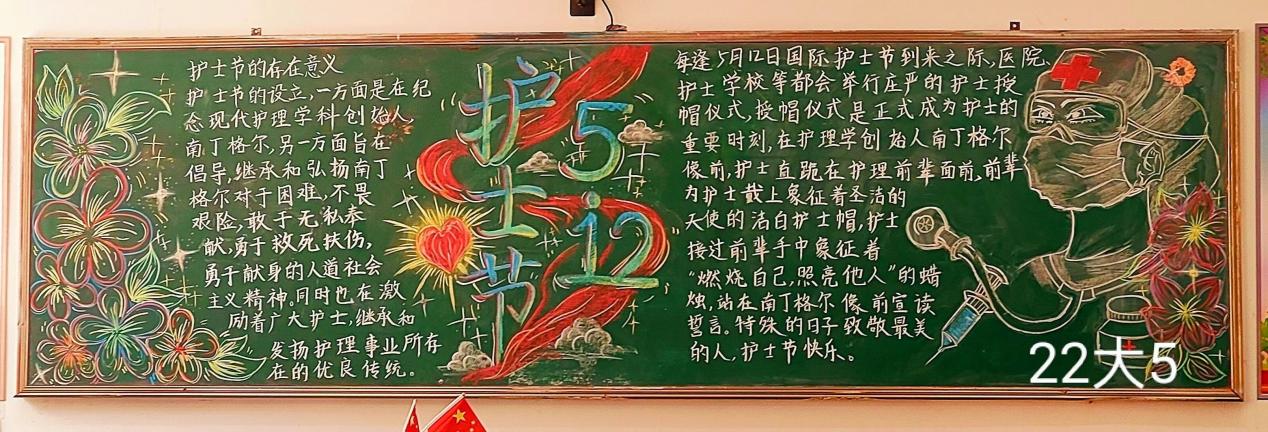 护士节的存在意义
护士节的设立,一方面是在纪
念现代护理学科创始人
南丁格尔,另一方面旨在
倡导,继承和弘扬南丁
格尔对于困难,不畏
艰险,敢于无私奉
献,勇于救死扶伤,
勇于献身的人道社会
主义精神。同时也在激
励着广大护士,继承和
发扬护理事业所存
在的优良传统。
护士节
5
12
每逢5月12日国际护士节到来之际,医院、
护士学校等都会举行庄严的护士授
帽仪式,授帽仪式是正式成为护士的
重要时刻,在护理学创始人南丁格尔
像前,护士直跪在护理前辈面前,前辈
为护士戴上象征着圣洁的
天使的洁白护士帽,护士
接过前辈手中象征着
“燃烧自己,照亮他人”的蜡
烛,站在南丁格尔像前宣读
誓言。特殊的日子致敬最美
的人,护士节快乐。
22大5